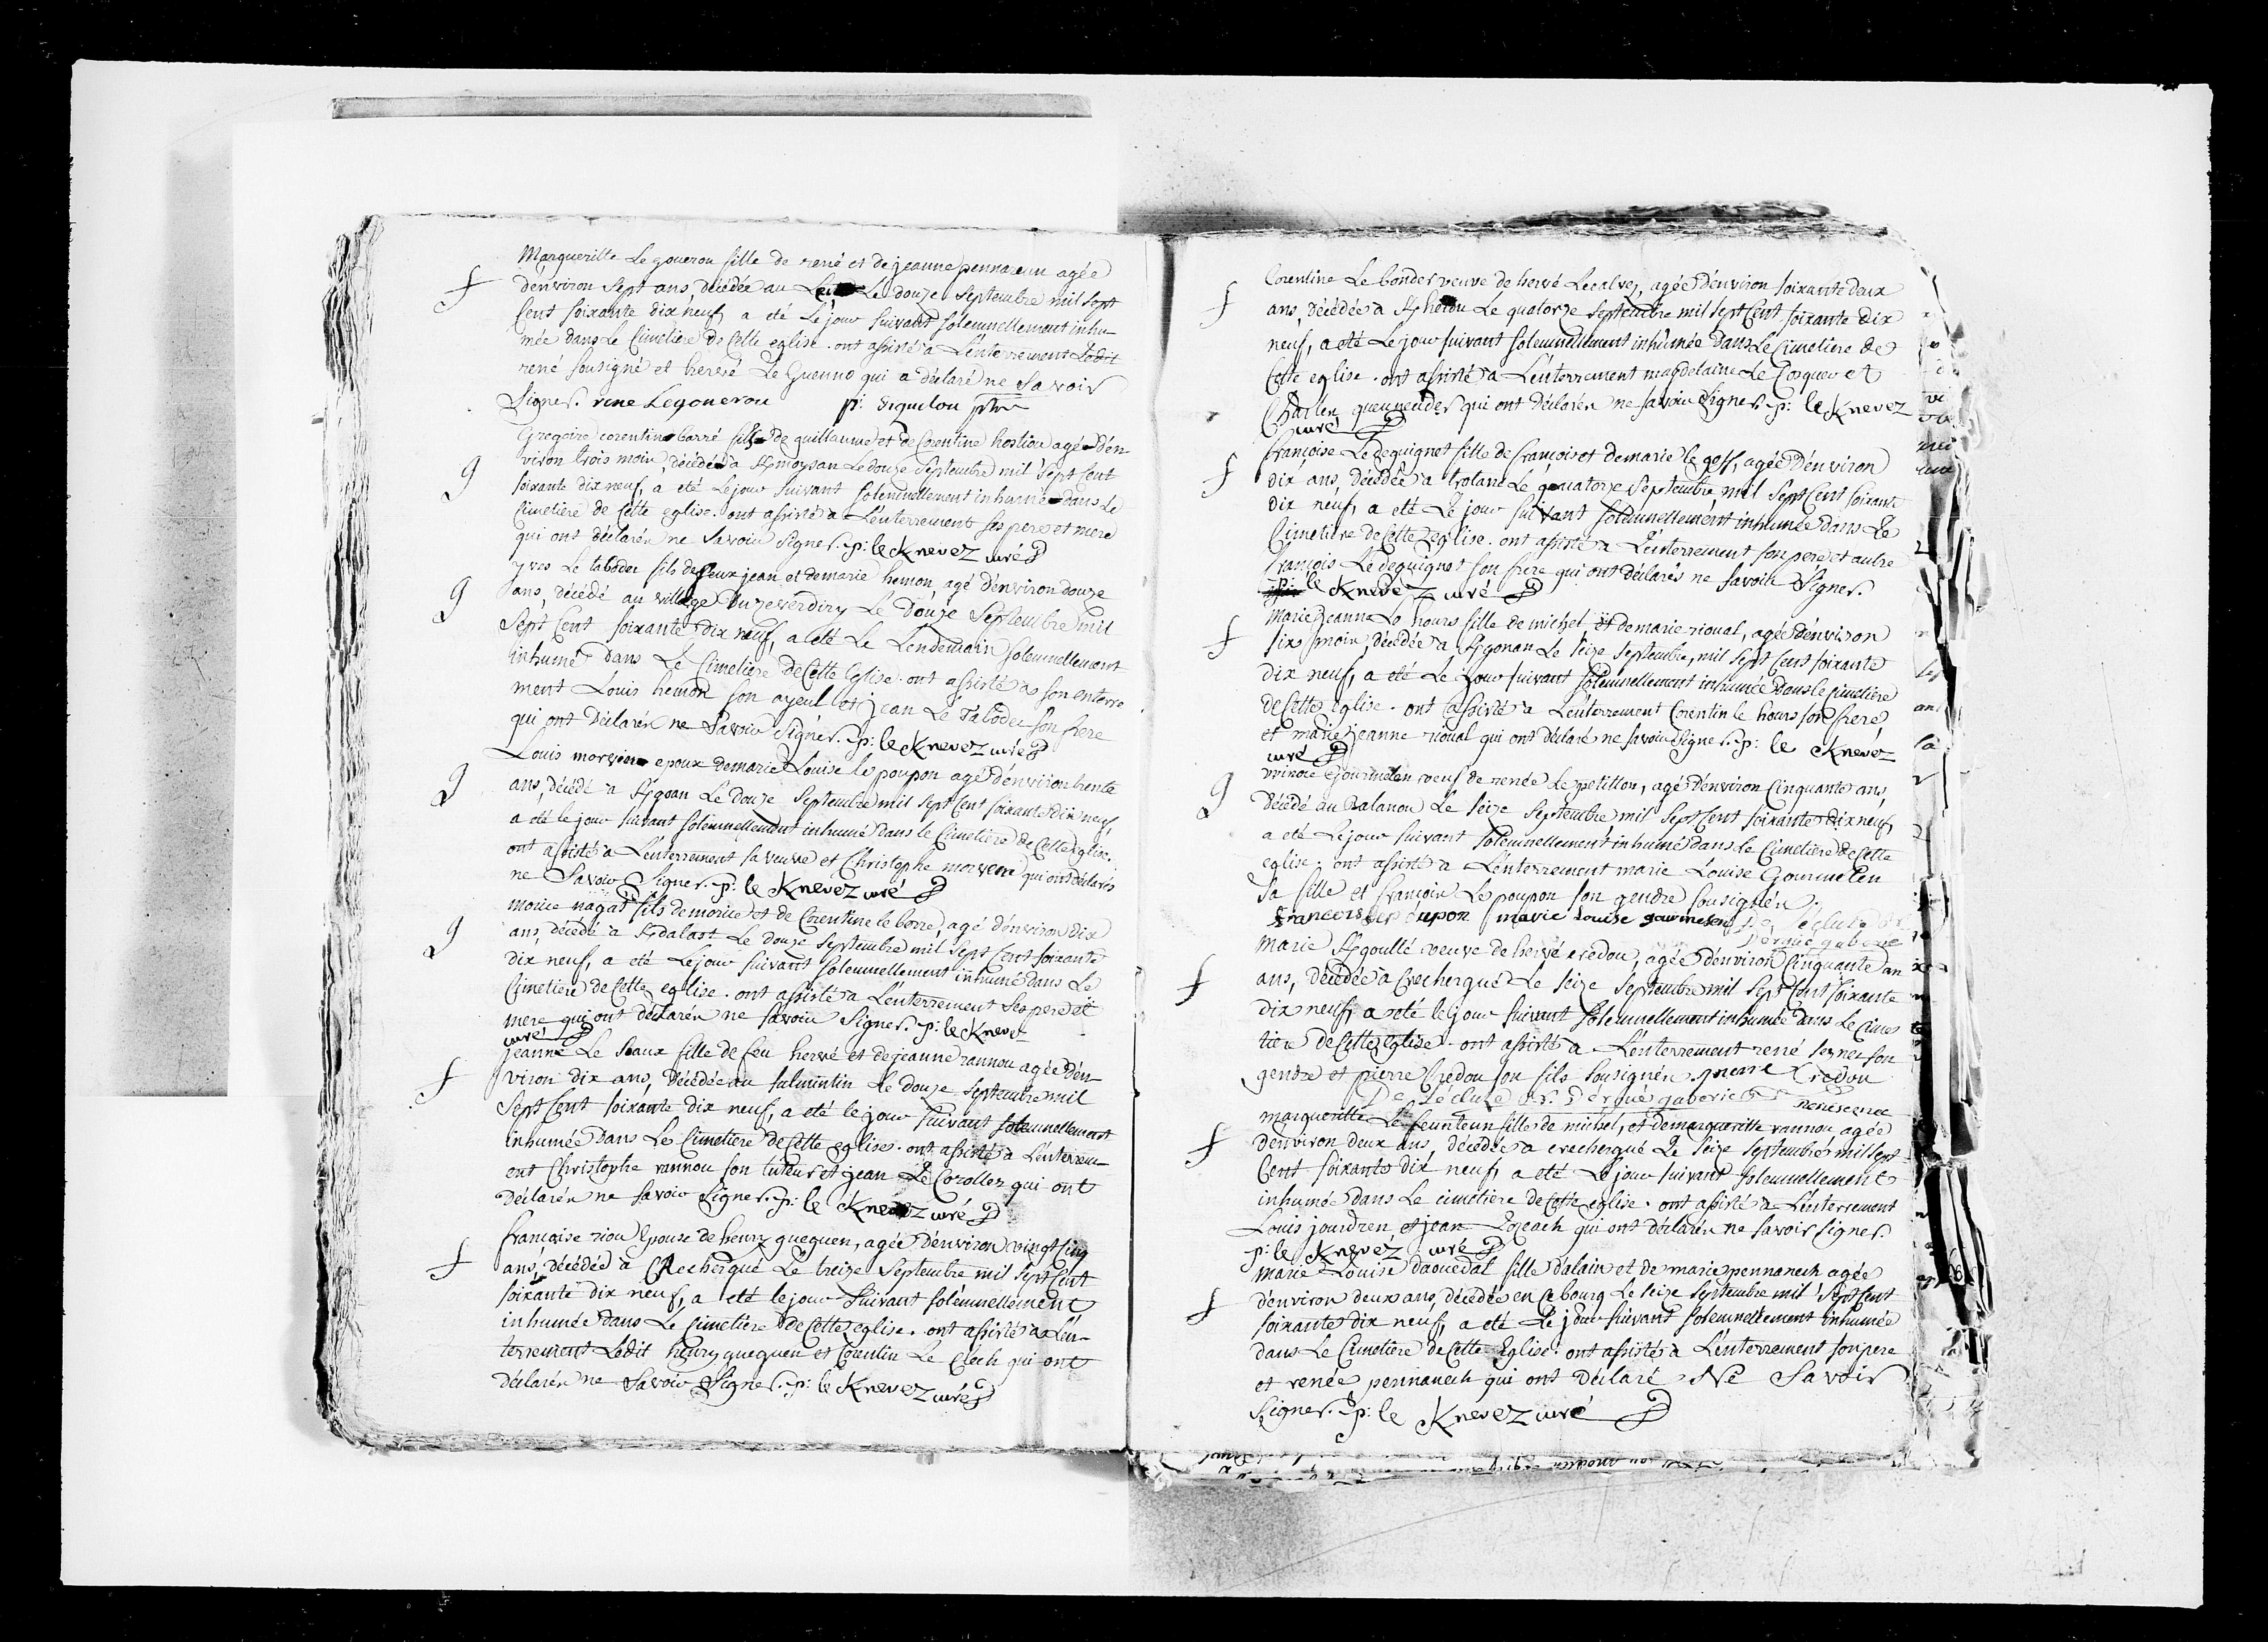 Margueritte Le goueron fille de rené et de jeanne pennarun agée
f
d'environ sept ans, décédée au Le douze Septembre mil sept
Cent soixante dix neuf, a été le jour suivant solemnellement inhu-
mée dans Le Cimetiere de Cette eglise. ont assisté a L'enterrement Ledit
rené sousigné et hervé Le Guenno qui a déclaré ne Savoir
Signer. rene Legoueron p: Siquelou ptre
Gregoire corentin barré fils de guillaume et de Corentine hostiou agé d'en-
g
viron trois mois, décédé a Kmoysan Le douze Septembre mil Sept Cent
soixante dix neuf, a été Le jour suivant solemnellement inhumé dans Le
Cimetiere de Cette eglise. ont assisté a L'enterrement ses pere et mere
qui ont déclarés ne Savoir Signer. p: le Knevez curé
yves Le tabodec fils de feux jean et de marie hemon, agé d'environ douze
g
ans, décédé au village Le Douze Septembre mil
Sept Cent soixante dix neuf, a été Le Lendemain solemnellement
inhumé dans Le Cimetiere de Cette Eglise. ont assisté a son enterre
ment Louis hemon son ayeul et jean Le Tabodec son frere
qui ont Déclarés ne Savoir Signer. p: le Knevez curé
Louis morvan epoux de marie Louise le poupon agé d'environ trente
g
ans, décédé a Kgoan Le douze Septembre mil sept Cent soixante dix neuf,
a été le jour suivant solemnellement inhumé dans le Cimetiere de Cette eglise.
ont assisté a L'enterrement sa veuve et Christophe morvan qui ont déclarés
ne Savoir Signer. p: le Knevez curé
morice nagat fils de morice et de Corentine le borre, agé d'environ dix
g
ans, décédé a Le douze Septembre mil sept Cent soixante
dix neuf, a été Le jour suivant solemnellement inhumé dans Le
Cimetiere de Cette eglise. ont assisté a L'enterrement Ses pere et
mere qui ont déclarés ne savoir Signer. p: le Knevez
curé
jeanne Le Seaux fille de feu hervé et de jeanne rannou agée d'en-
f
viron dix ans, décédée au Le douze Septembre mil
Sept Cent soixante dix neuf, a été le jour suivant solemnellement
inhumée dans Le Cimetiere de Cette eglise. ont assisté a L'enterrem-
ent Christophe rannou son tuteur et jean Le Corollez qui ont
Déclarés ne savoir Signer. p: le Knevez curé
francoise riou Epouse de henry gueguen, agée d'environ vingt Cinq
f
ans, décédée a Crechergué Le treize Septembre mil sept Cent
soixante dix neuf, a été le jour suivant solemnellement
inhumée dans Le Cimetiere de Cette eglise. ont assisté a L'en-
terrement Ledit henry gueguen et Corentin Le Clech qui ont
déclarés ne Savoir Signer. p: le Knevez curé
Corentine Le bonder veuve de hervé Lecalvez, agée d'environ soixante deux
f
ans, décédée a Le quatorze Septembre mil sept Cent soixante dix
neuf, a été Le jour suivant solemnellement inhumée dans Le Cimetiere de
Cette eglise. ont assisté a L'enterrement magdelaine Le Cosquer et
Charles queneudec qui ont déclarés ne savoir Signer. p: le Knevez
curé
francoise Le deguignet fille de francois et de marie le goff, agée d'environ
f
dix ans, décédée a trolan Le quatorze Septembre mil Sept Cent soixante
dix neuf, a été Le jour suivant solemnellement inhumée dans Le
Cimetiere de Cette eglise. ont assisté a L'enterrement son pere et autre
francois Le deguignet son frere qui ont déclarés ne savoir Signer.
p: le Knevez curé
Marie jeanne Le hours fille de michel et de marie rioual, agée d'environ
f
six mois, décédée a Kgonan Le Seize Septembre, mil sept Cent soixante
dix neuf, a été Le jour suivant solemnellement inhumée dans le Cimetiere
de Cette eglise. ont assisté a L'enterrement Corentin le hours son frere
et marie jeanne rioual qui ont déclaré ne savoir Signer. p: le Knevez
curé
gourmelen veuf de renée Le petillon, agé d'environ Cinquante ans,
g
décédé au Balanou Le Seize Septembre mil Sept Cent soixante dix neuf
a été Le jour suivant solemnellement inhumé dans Le Cimetiere de Cette
eglise. ont assisté a L'enterrement marie Louise Gourmelen
Sa fille et francois Le poupon son gendre sousignés.
francois Le poupon marie Louise gourmelen De l'écluse
Marie Kgoulté veuve de hervé credou, agée d'environ Cinquante an
f
ans, décédée a Crechergué Le Seize Septembre mil Sept Cent soixante
dix neuf, a été le jour suivant solemnellement inhumée dans Le Cime
tiere de Cette eglise. ont assisté a L'enterrement rené Sernec son
gendre et pierre Credou son fils sousignés. pierre Credou
De l'écluse d'ergué gaberic rene sernec
margueritte Le feunteun fille de michel, et de margueritte rannou agée
f
d'environ deux ans, décédée a crechergué Le Seize Septembre mil Sept
Cent soixante dix neuf, a été Le jour suivant solemnellement
inhumée dans Le cimetière de Cette eglise. ont assisté a L'enterrement
Louis jourdren et jean qui ont déclarés ne savoir signer.
p: le Knevez curé
Marie Louise daouedal fille d'alain et de marie pennanech agée
f
d'environ deux ans, décédée en Ce bourg Le Seize Septembre mil Sept Cent
soixante dix neuf, a été Le jour suivant solemnellement inhumée
dans Le Cimetiere de Cette Eglise. ont assistés a L'enterrement son pere
et renée pennanech qui ont déclaré Ne Savoir
Signer. p: le Knevez curé